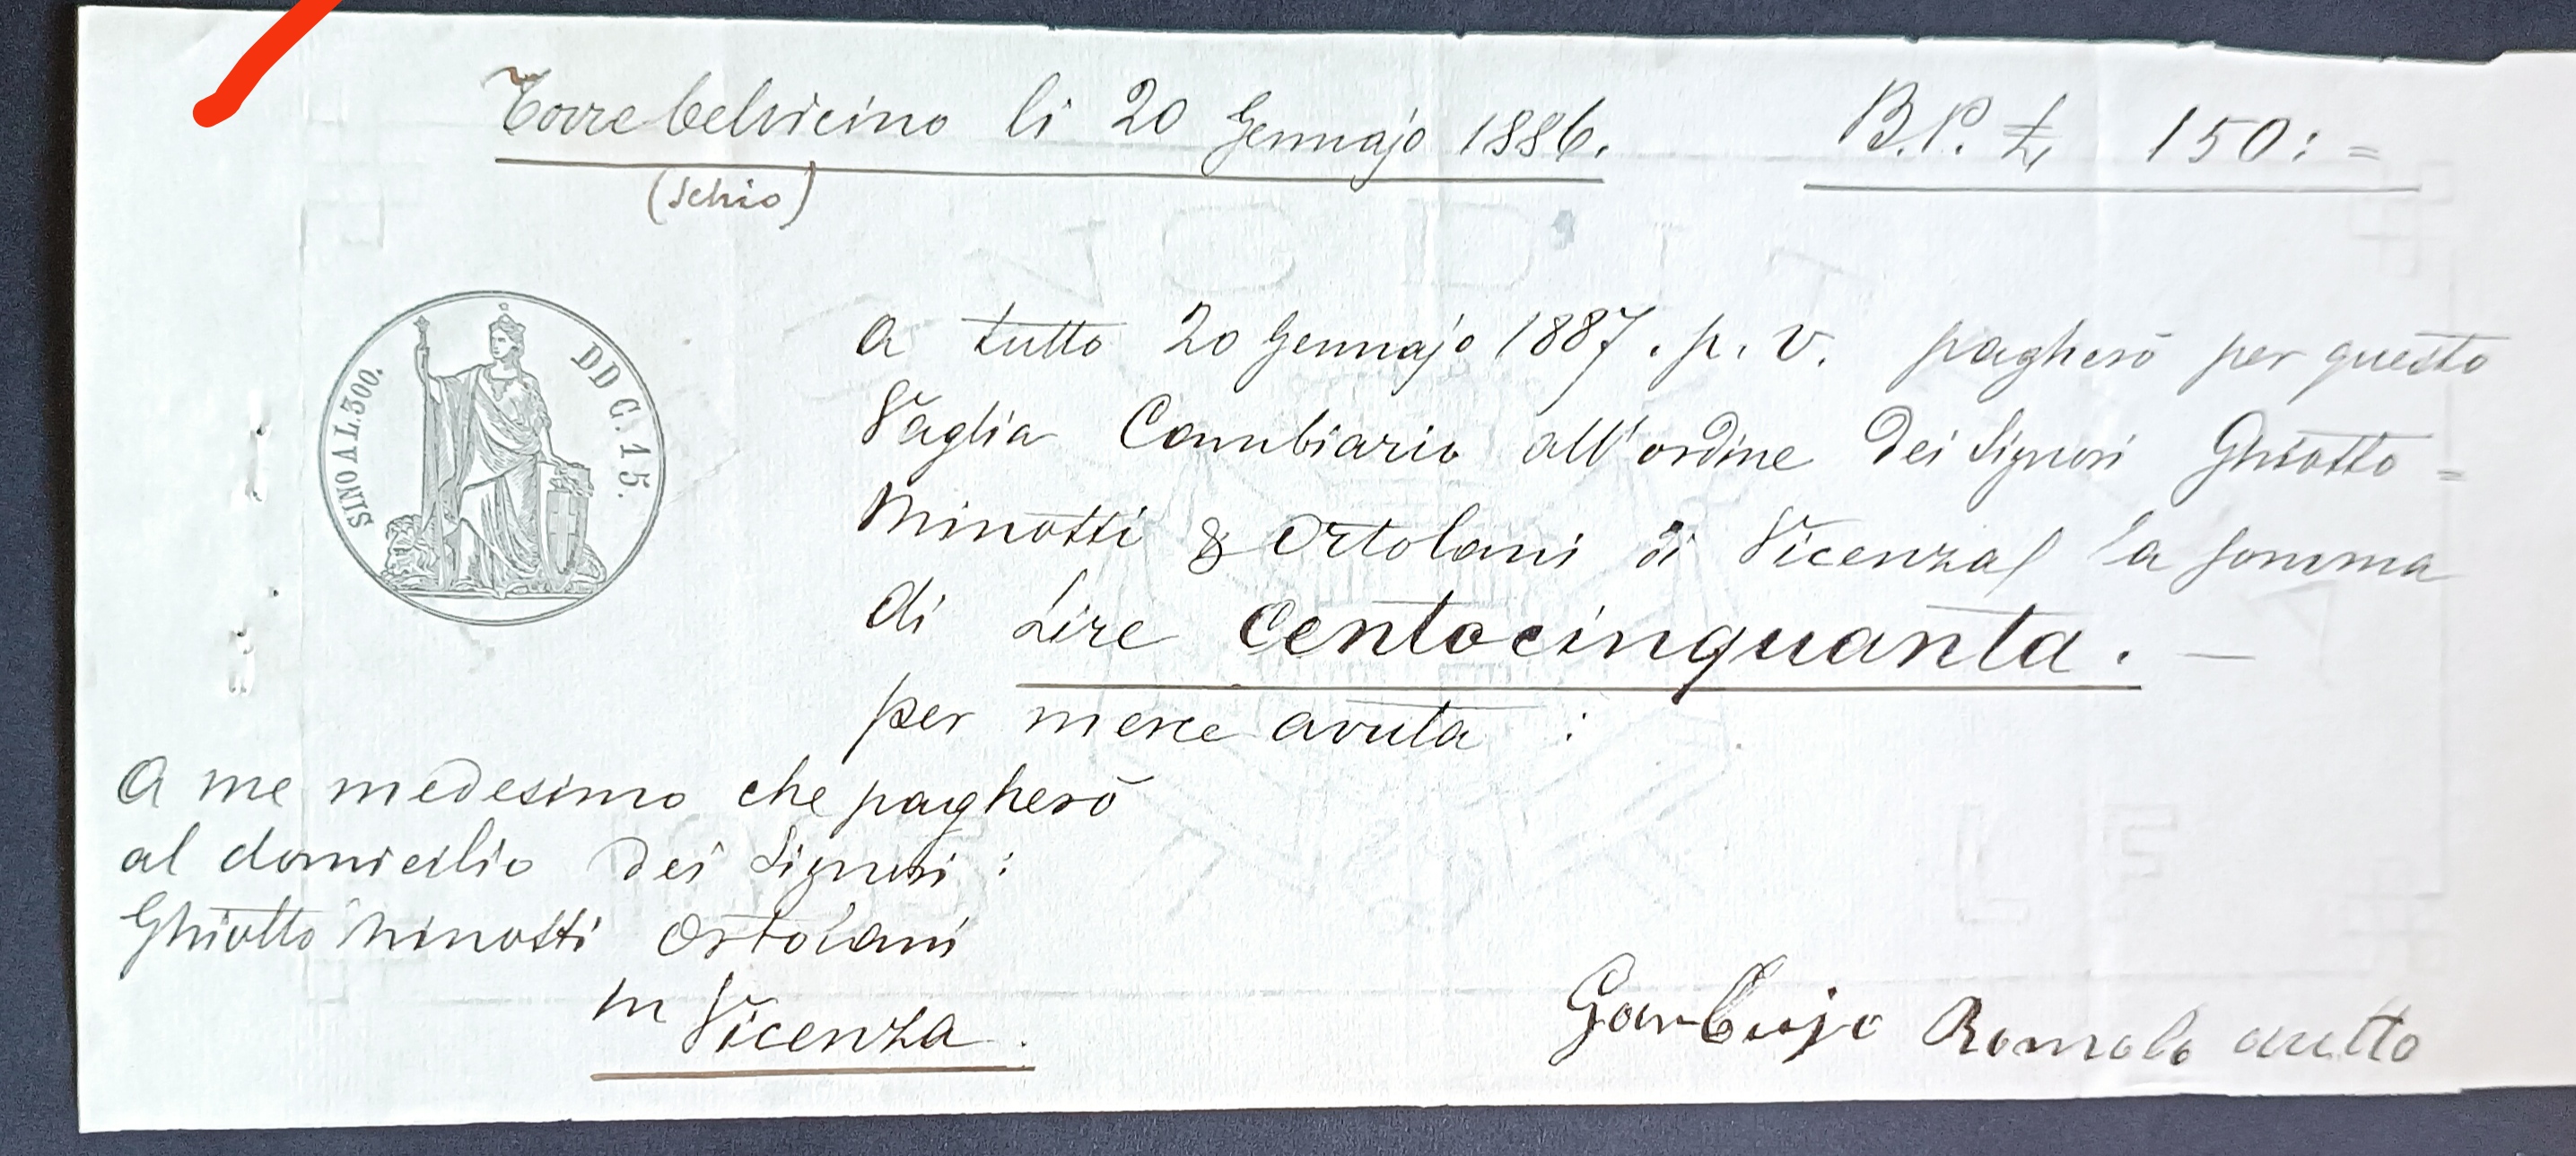 Torrebelvicino li 20 Gennajo 1886. B.P. £ 150:=
(Schio)
SINO A L.300. DD C.15.
a tutto 20 Gennajo 1887. p. v. pagherò per questo
Vaglia Cambiario all'ordine dei Signori Ghiotto=
Minotti & Ortolani di Vicenza la somma
di Lire Centocinquanta. —
per merce avuta :
A me medesimo che pagherò
al domicilio dei Signori :
Ghiotto Minotti Ortolani
in Vicenza.
Garbujo Romolo